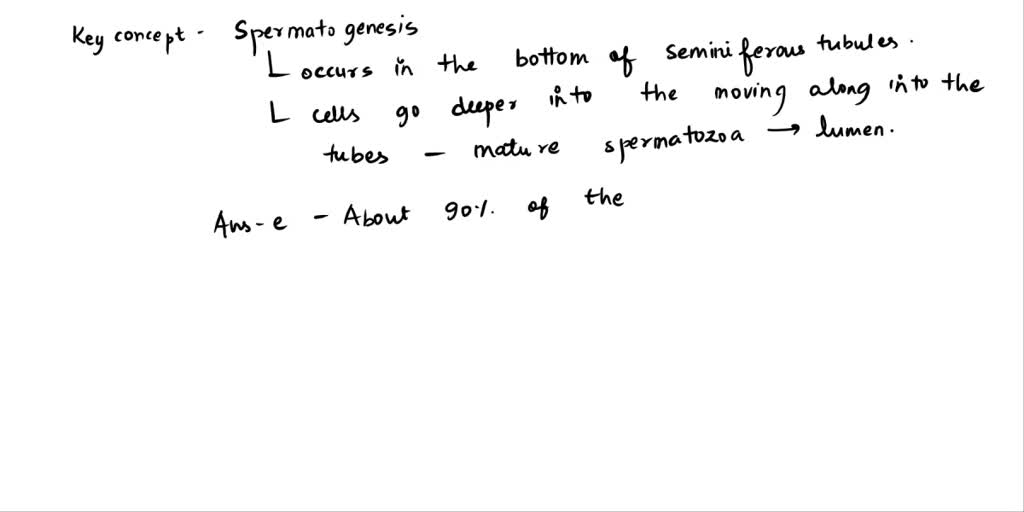 Key concept - Spermatogenesis
L occurs in the bottom of seminiferous tubules.
L cells go deeper into the moving along into the
tubes - mature spermatozoa → lumen.
Ans-e - About 90% of the